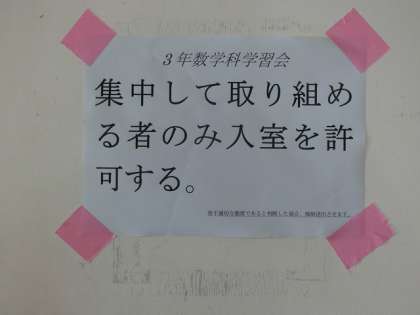 ３年数学科学習会
集中して取り組め
る者のみ入室を許
可する。